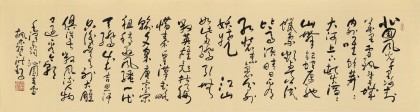 北国风光千里冰
封万里雪飘望长城
内外唯余莽莽
大河上下顿失滔滔
山舞银蛇原驰蜡
象欲与天公试比高
须晴日看
红装素裹分外
妖娆 江山
如此多娇引无
数英雄竞折腰
惜秦皇汉武
略输文采唐宗宋祖
稍逊风骚一代
天骄成吉思汗
只识弯弓射大雕
俱往矣数风流人物
还看今朝
毛泽东词沁园春雪